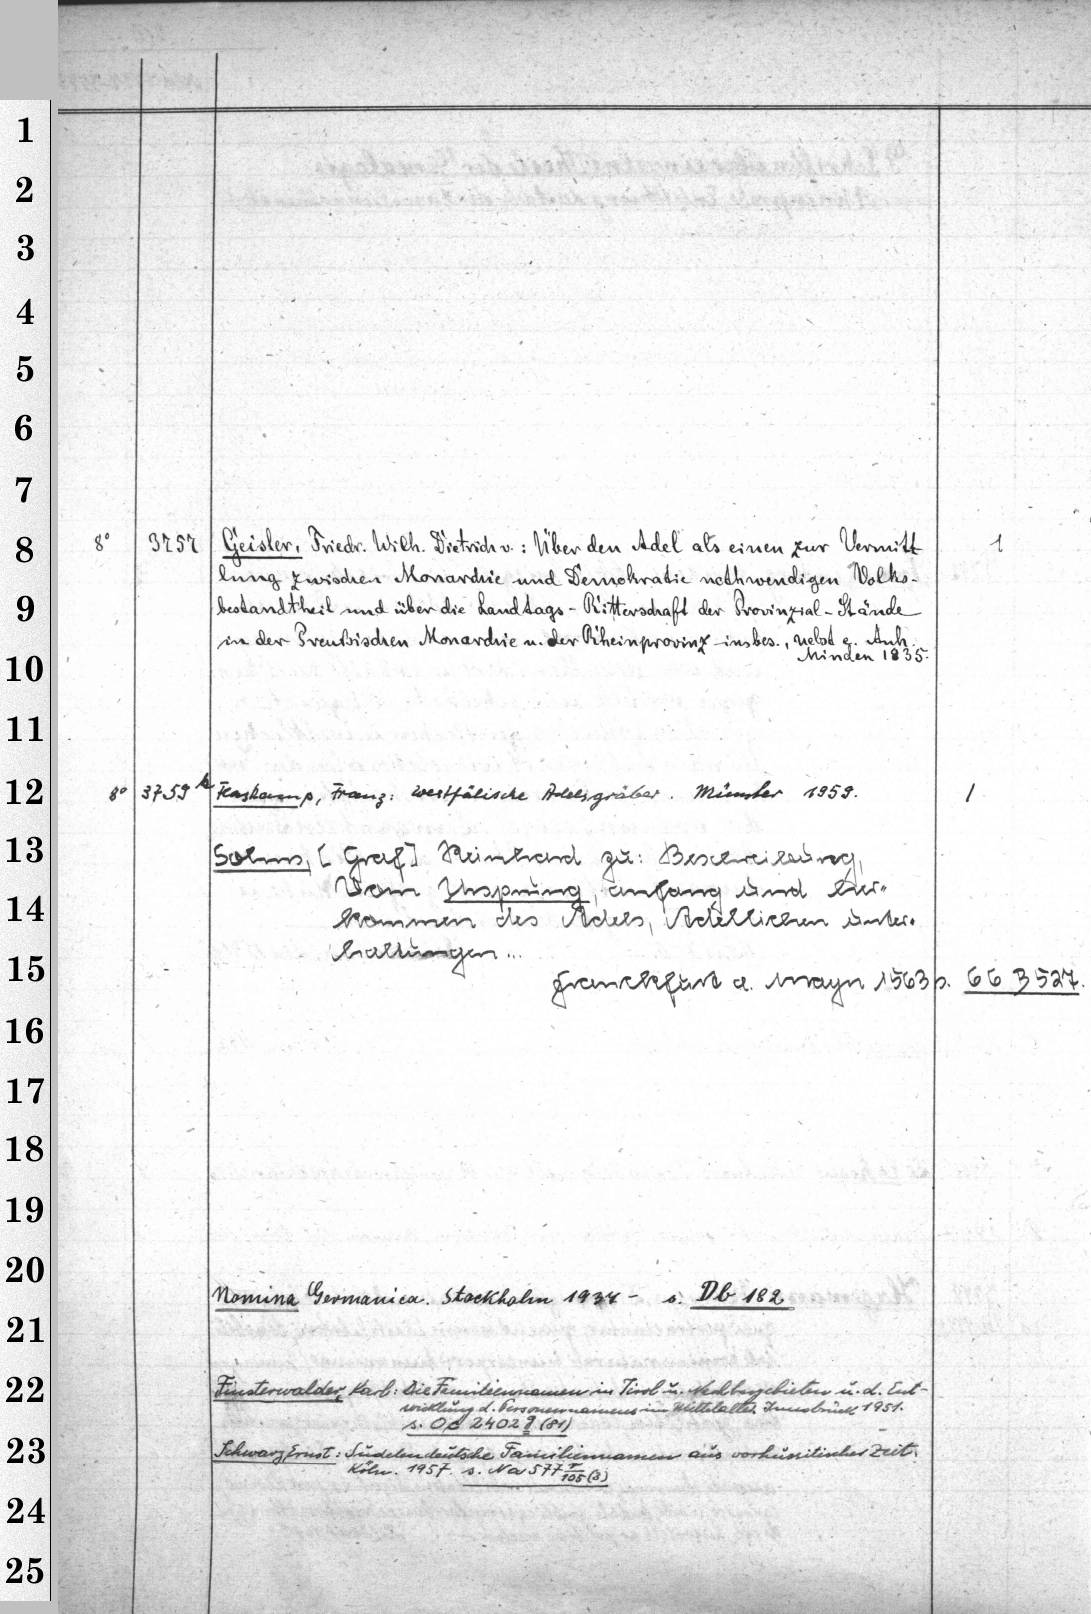 1
2
3
4
5
6
7
8 8° 3757 Geisler, Friedr. Wilh. Dietrich v.: Über den Adel als einen zur Vermitt
lung zwischen Monarchie und Demokratie nothwendigen Volks-
9 bestandtheil und über die Landtags-Ritterschaft der Provinzial-Stände
in der Preußischen Monarchie u. der Rheinprovinz insbes., nebst e. Anh.
10 Minden 1835.
1
11
12 8° 3759 k Kaskamp, Franz: Westfälische Adelsgräber. Münster 1959. 1
13 Solms, [Graf] Reinhard zu: Beschreibung,
Vom Ursprung, anfang und her-
14 kommen des Adels, Adellichen unter-
haltungen...
15 Franckfurt a. Mayn 1563 s. 66 B 527.
16
17
18
19
20 Nomina Germanica. Stockholm 1937- s. Db 182
21
22 Finsterwalder, Karl: Die Familiennamen in Tirol u. Nachbargebieten u. d. Ent-
wicklung d. Personennamens im Mittelalter. Innsbruck 1951.
s. Oc 2402 g (81)
23 Schwarz Ernst: Sudetendeutsche Familiennamen aus vorhusitischer Zeit.
Köln. 1957. s. Na 577 r/105 (3)
24
25